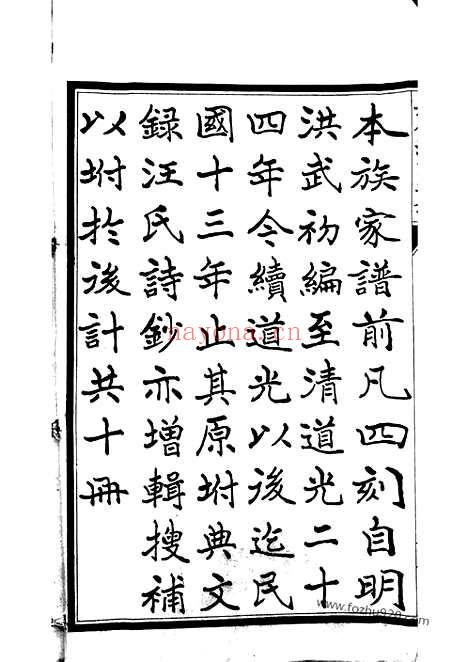 本族家譜前凡四刻自明
洪武初編至清道光二十
四年今續道光以後迄民
國十三年止其原坿典文
錄汪氏詩鈔亦增輯搜補
以坿於後計共十冊
nayona.cn
www.fozhu920.com